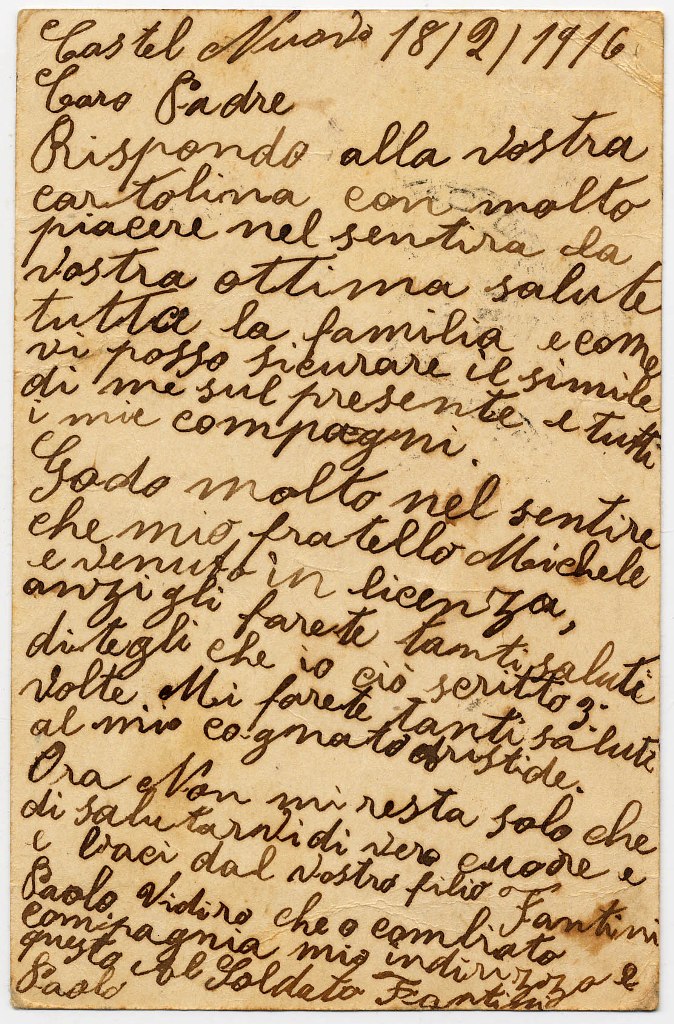 Castel Nuovo 18/2/1916
Caro Padre
Rispondo alla vostra
cartolina con molto
piacere nel sentira la
vostra ottima salute
tutta la familia e come
vi posso sicurare il simile
di me sul presente e tutti
i mie compagni.
Godo molto nel sentire
che mio fratello Michele
e venuto in licenza,
anzi gli farete tanti saluti
ditegli che io ciò scritto 3.
volte Mi farete tanti saluti
al mio cognato Aristide.
Ora Non mi resta solo che
di salutarvi di vero cuore e
e baci dal vostro filio Fantini
Paolo Vidiro che o combiato
compagnia mio indirizzo e
questo Al Soldato Fantini
Paolo